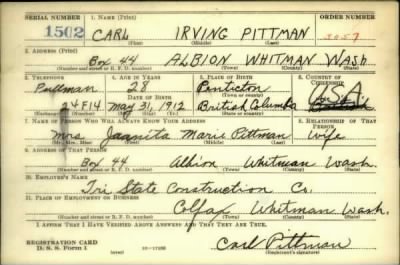 SERIAL NUMBER 1. NAME (Print) ORDER NUMBER
1502 CARL IRVING PITTMAN 3057
(First) (Middle) (Last)
2. ADDRESS (Print)
Box 44 ALBION WHITMAN WASH
(Number and street or R. F. D. number) (Town) (County) (State)
3. TELEPHONE 4. AGE IN YEARS 5. PLACE OF BIRTH 6. COUNTRY OF CITIZENSHIP
Pullman 28 Penticton
(Exchange) DATE OF BIRTH (Town or county) USA
24F14 May 31, 1912 British Columbia
(Number) (Mo.) (Day) (Yr.) (State or country)
7. NAME OF PERSON WHO WILL ALWAYS KNOW YOUR ADDRESS 8. RELATIONSHIP OF THAT PERSON
Mrs Juanita Marie Pittman wife
(Mr., Mrs., Miss) (First) (Middle) (Last)
9. ADDRESS OF THAT PERSON
Box 44 Albion Whitman Wash.
(Number and street or R. F. D. number) (Town) (County) (State)
10. EMPLOYER'S NAME
Tri State Construction Co.
11. PLACE OF EMPLOYMENT OR BUSINESS
Colfax Whitman Wash.
(Number and street or R. F. D. number) (Town) (County) (State)
I AFFIRM THAT I HAVE VERIFIED ABOVE ANSWERS AND THAT THEY ARE TRUE.
REGISTRATION CARD
D. S. S. Form 1 16-17105 Carl Pittman
(Registrant's signature)